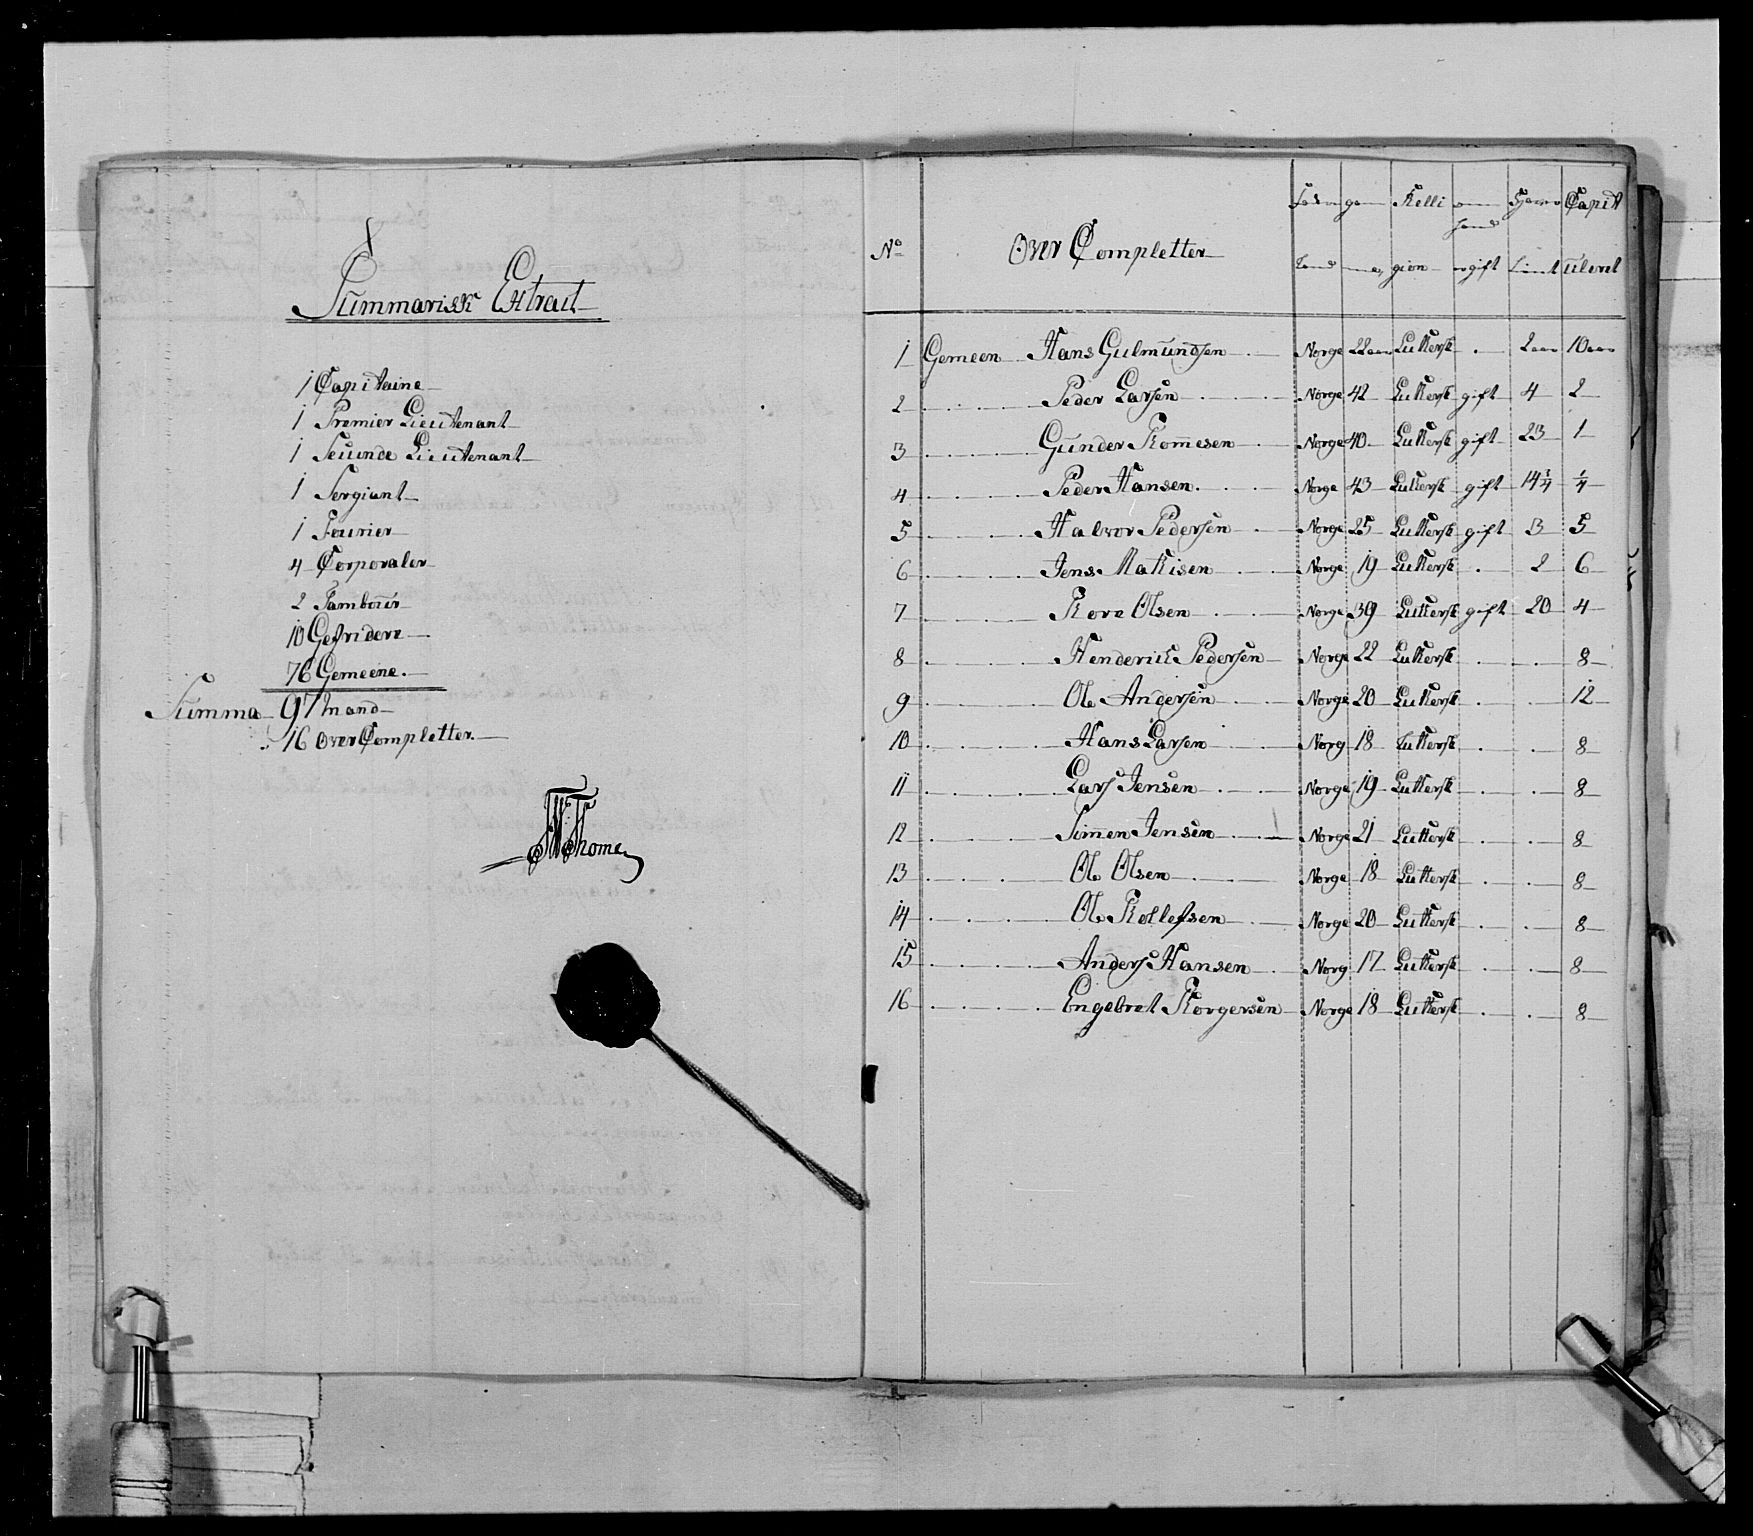 Summarisk Extract
1 Capitaine
1 Premier Lieutenant
1 Secunde Lieutenant
1 Sergiant
1 Fourier
4 Corporaler
2 Tambour
10 Gefridere
76 Gemeene.
Summa 97 Mand
16 Over Completter.
Thome
No Over Completter Føde Land Reli gion om gift Capit uleret
1 Gemeen Hans Gulmundsen Norge 22 aar Luttersk . 2 aar 10 aar
2 Peder Larsen Norge 42 Luttersk gift 4 2
3 Gunder Tommesen Norge 40 Luttersk gift 23 1
4 Peder Hansen Norge 43 Luttersk gift 14 3/4 1/4
5 Halvor Pedersen Norge 25 Luttersk gift 3 5
6 Jens Mathisen Norge 19 Luttersk . 2 6
7 Tore Olsen Norge 39 Luttersk gift 20 4
8 Henderick Pedersen Norge 22 Luttersk . . 8
9 Ole Andersen Norge 20 Luttersk . . 12
10 Hans Larsen Norg 18 Luttersk . . 8
11 Lars Jensen Norge 19 Luttersk . . 8
12 Simmen Jensen Norge 21 Luttersk . . 8
13 Ole Olsen Norge 18 Luttersk . . 8
14 Ole Tollefsen Norge 20 Luttersk . . 8
15 Anders Hansen Norg 17 Luttersk . . 8
16 Engebret Torgersen Norge 18 Luttersk . . 8